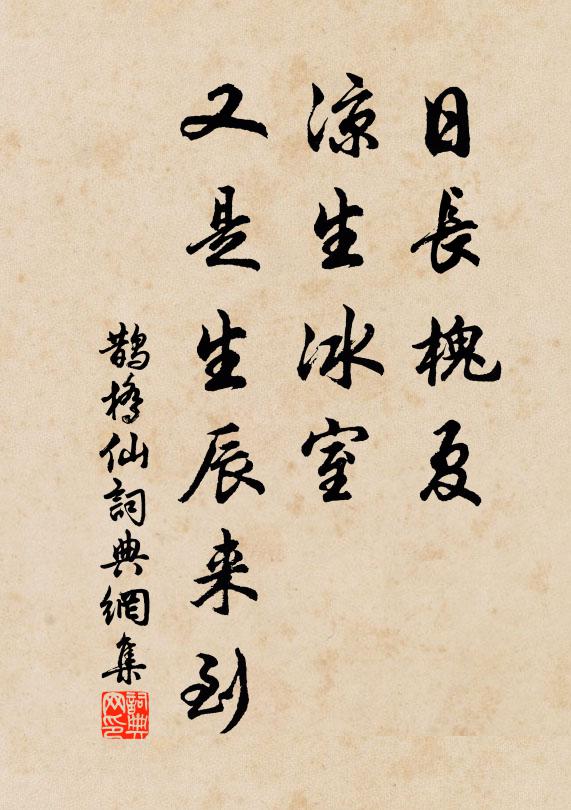 日長槐夏
凉生冰室
又是生辰来到
鵲橋仙詞典網集
詞典
网印